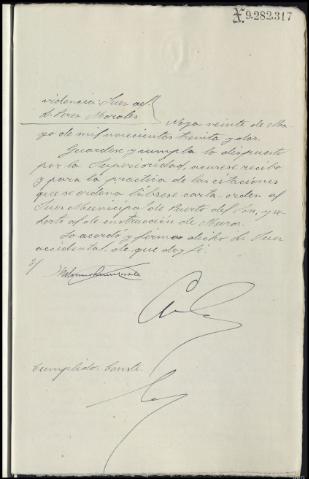 X 9.282.317
videncia Juez ac
d. Perez Morales
Noya veinte de Ma
yo de mil novecientos treinta y dos.
Guardese y cumpla lo dispuesto
por la Superioridad, acusese recibo
y para la practica de las citaciones
que se ordena librese carta orden al
Juez Municipal de Puerto del Son, y
de instruccion de Muros.
Lo acordó y firma dicho Sr. Juez
accidental de que doy fé.
Cumplido. Conste.